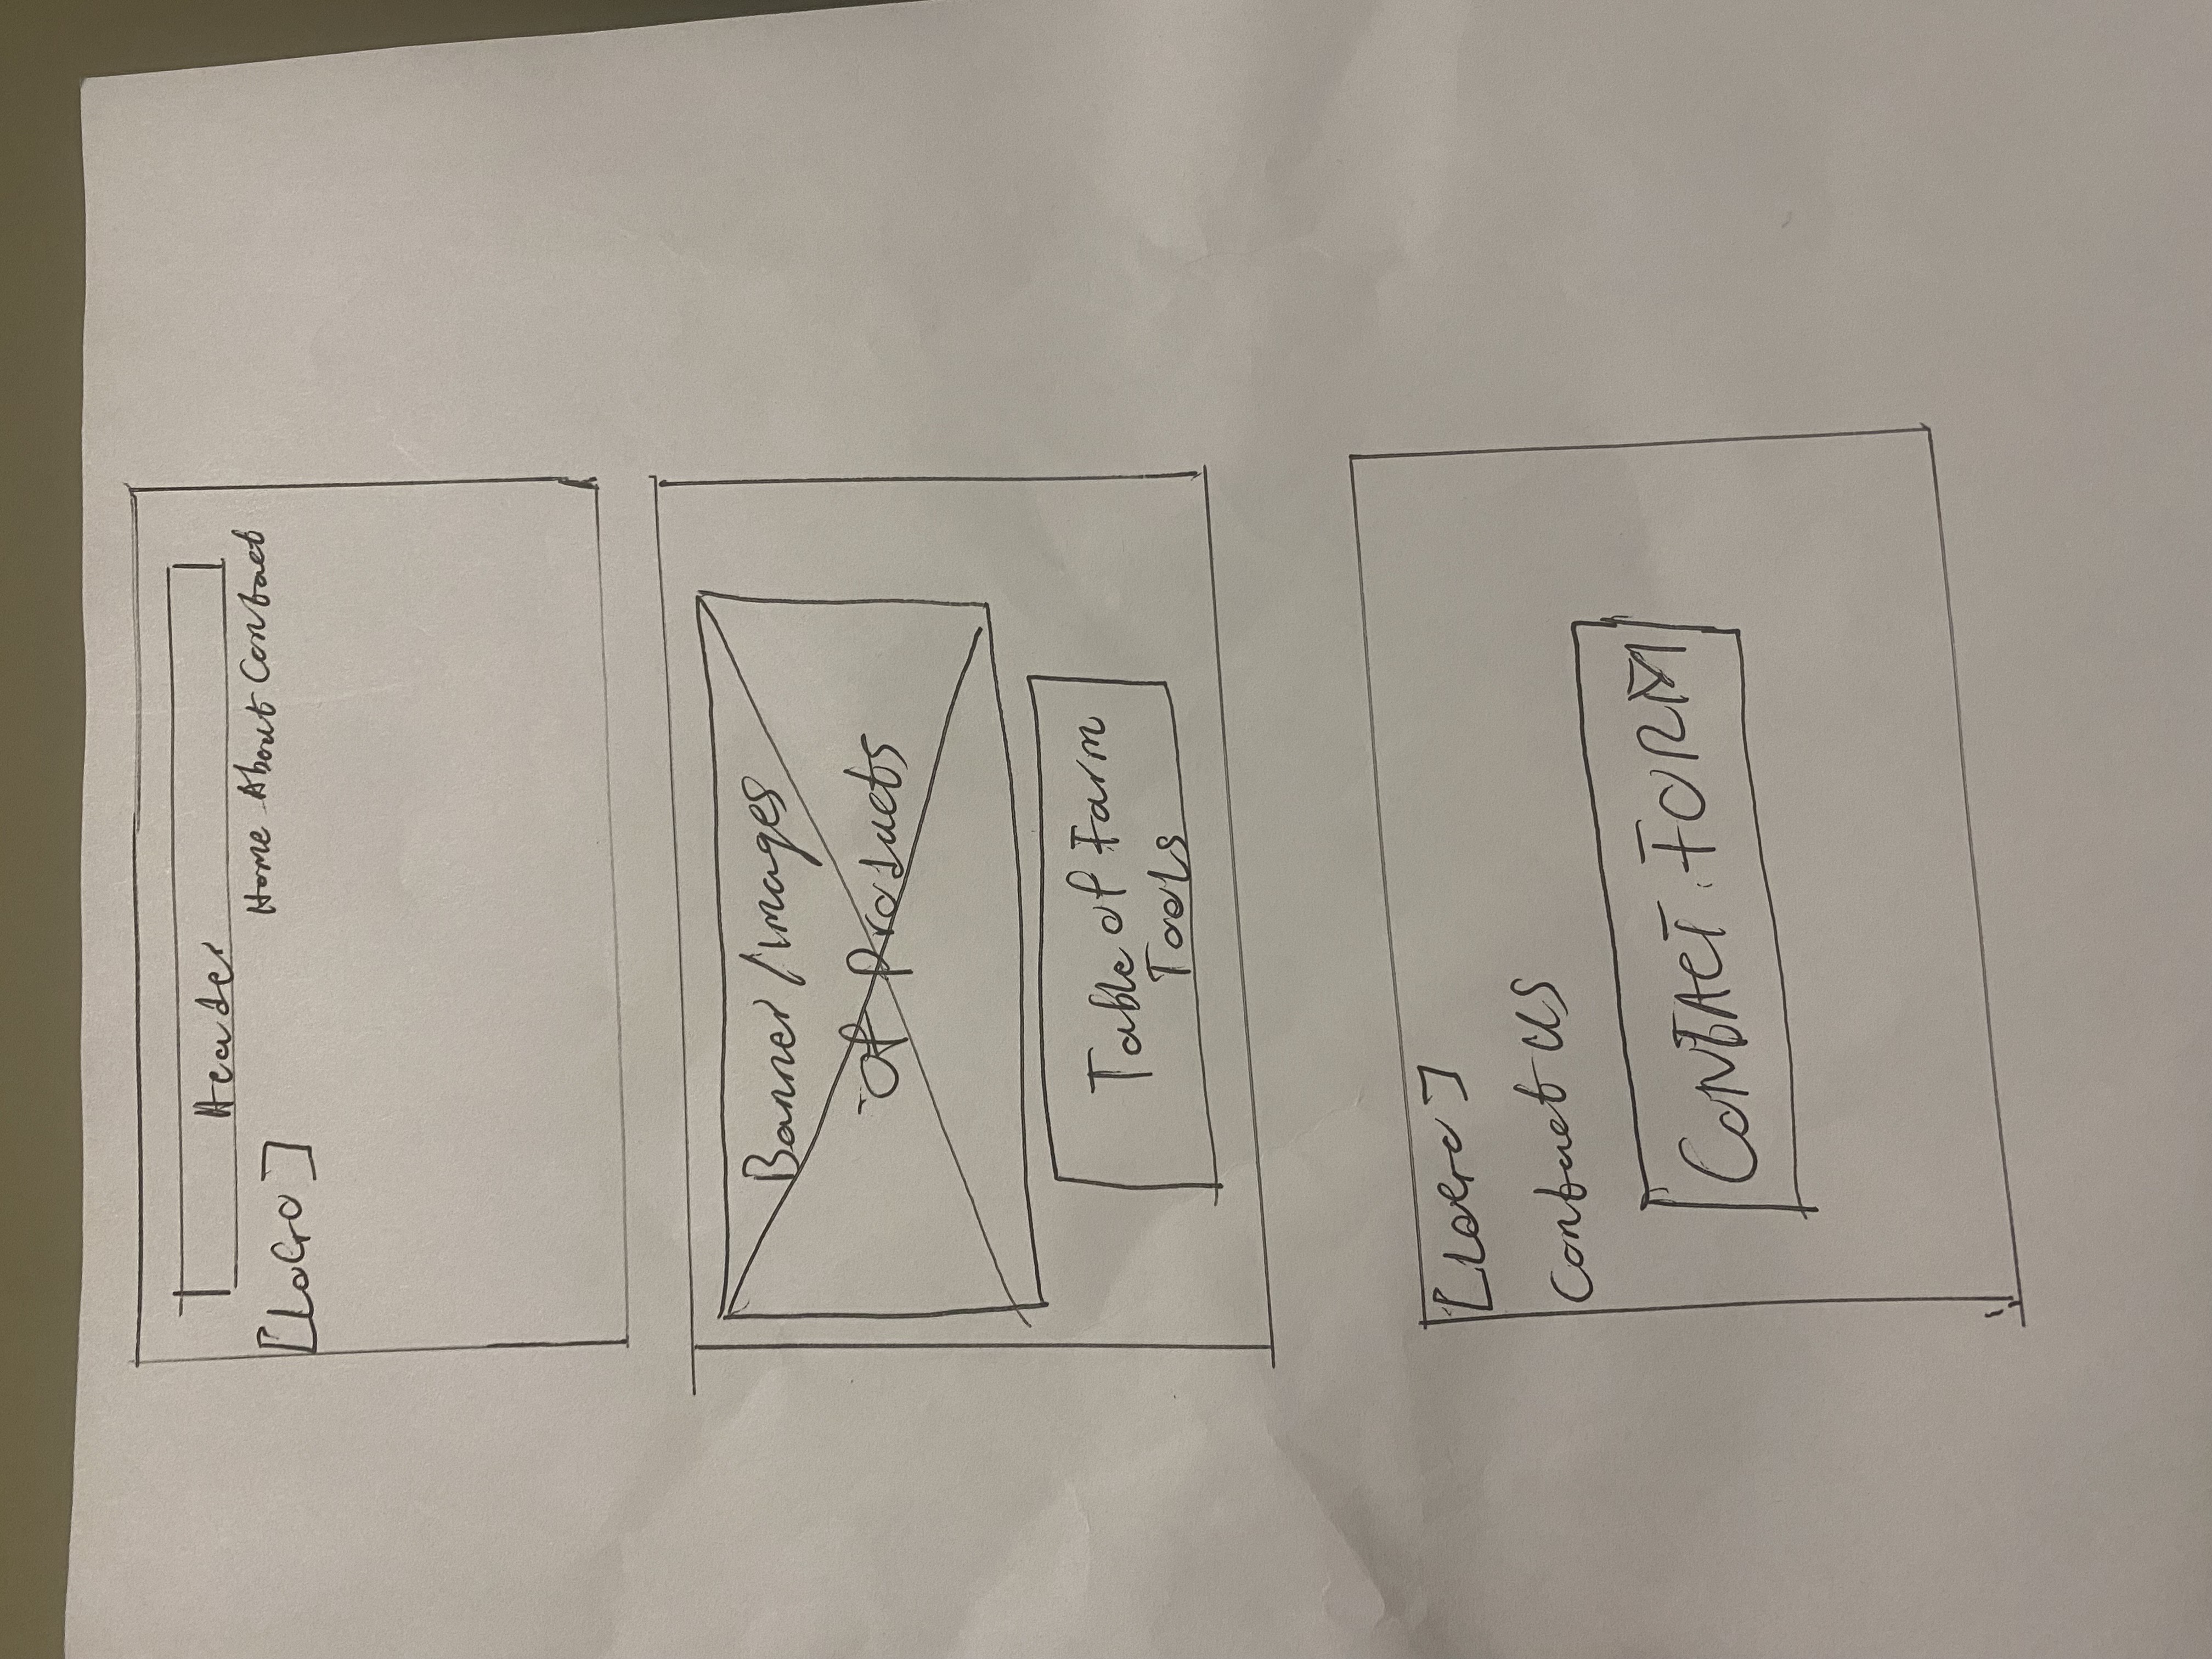 Header
Home About Contact
[LOGO]
Banner/Images
Of Products
Table of Farm
Tools
[LOGO]
Contact US
CONTACT FORM